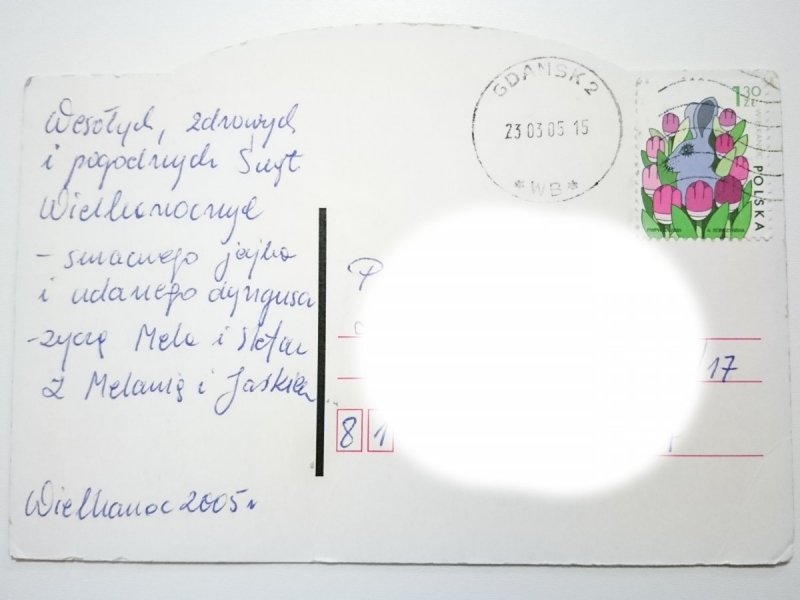 Wesołych, zdrowych
i pogodnych Świąt
Wielkanocnych
- smacznego jajka
i udanego dyngusa
- życzą Mela i Stefan
z Melanią i Jaśkiem
Wielkanoc 2005r
GDAŃSK 2
23 03 05 15
* WB *
1,30
ZŁ
POLSKA
P
17
8 1